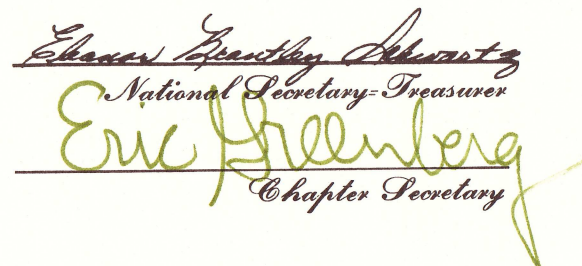 Eleanor Brantley Schwartz
National Secretary=Treasurer
Eric Greenberg
Chapter Secretary